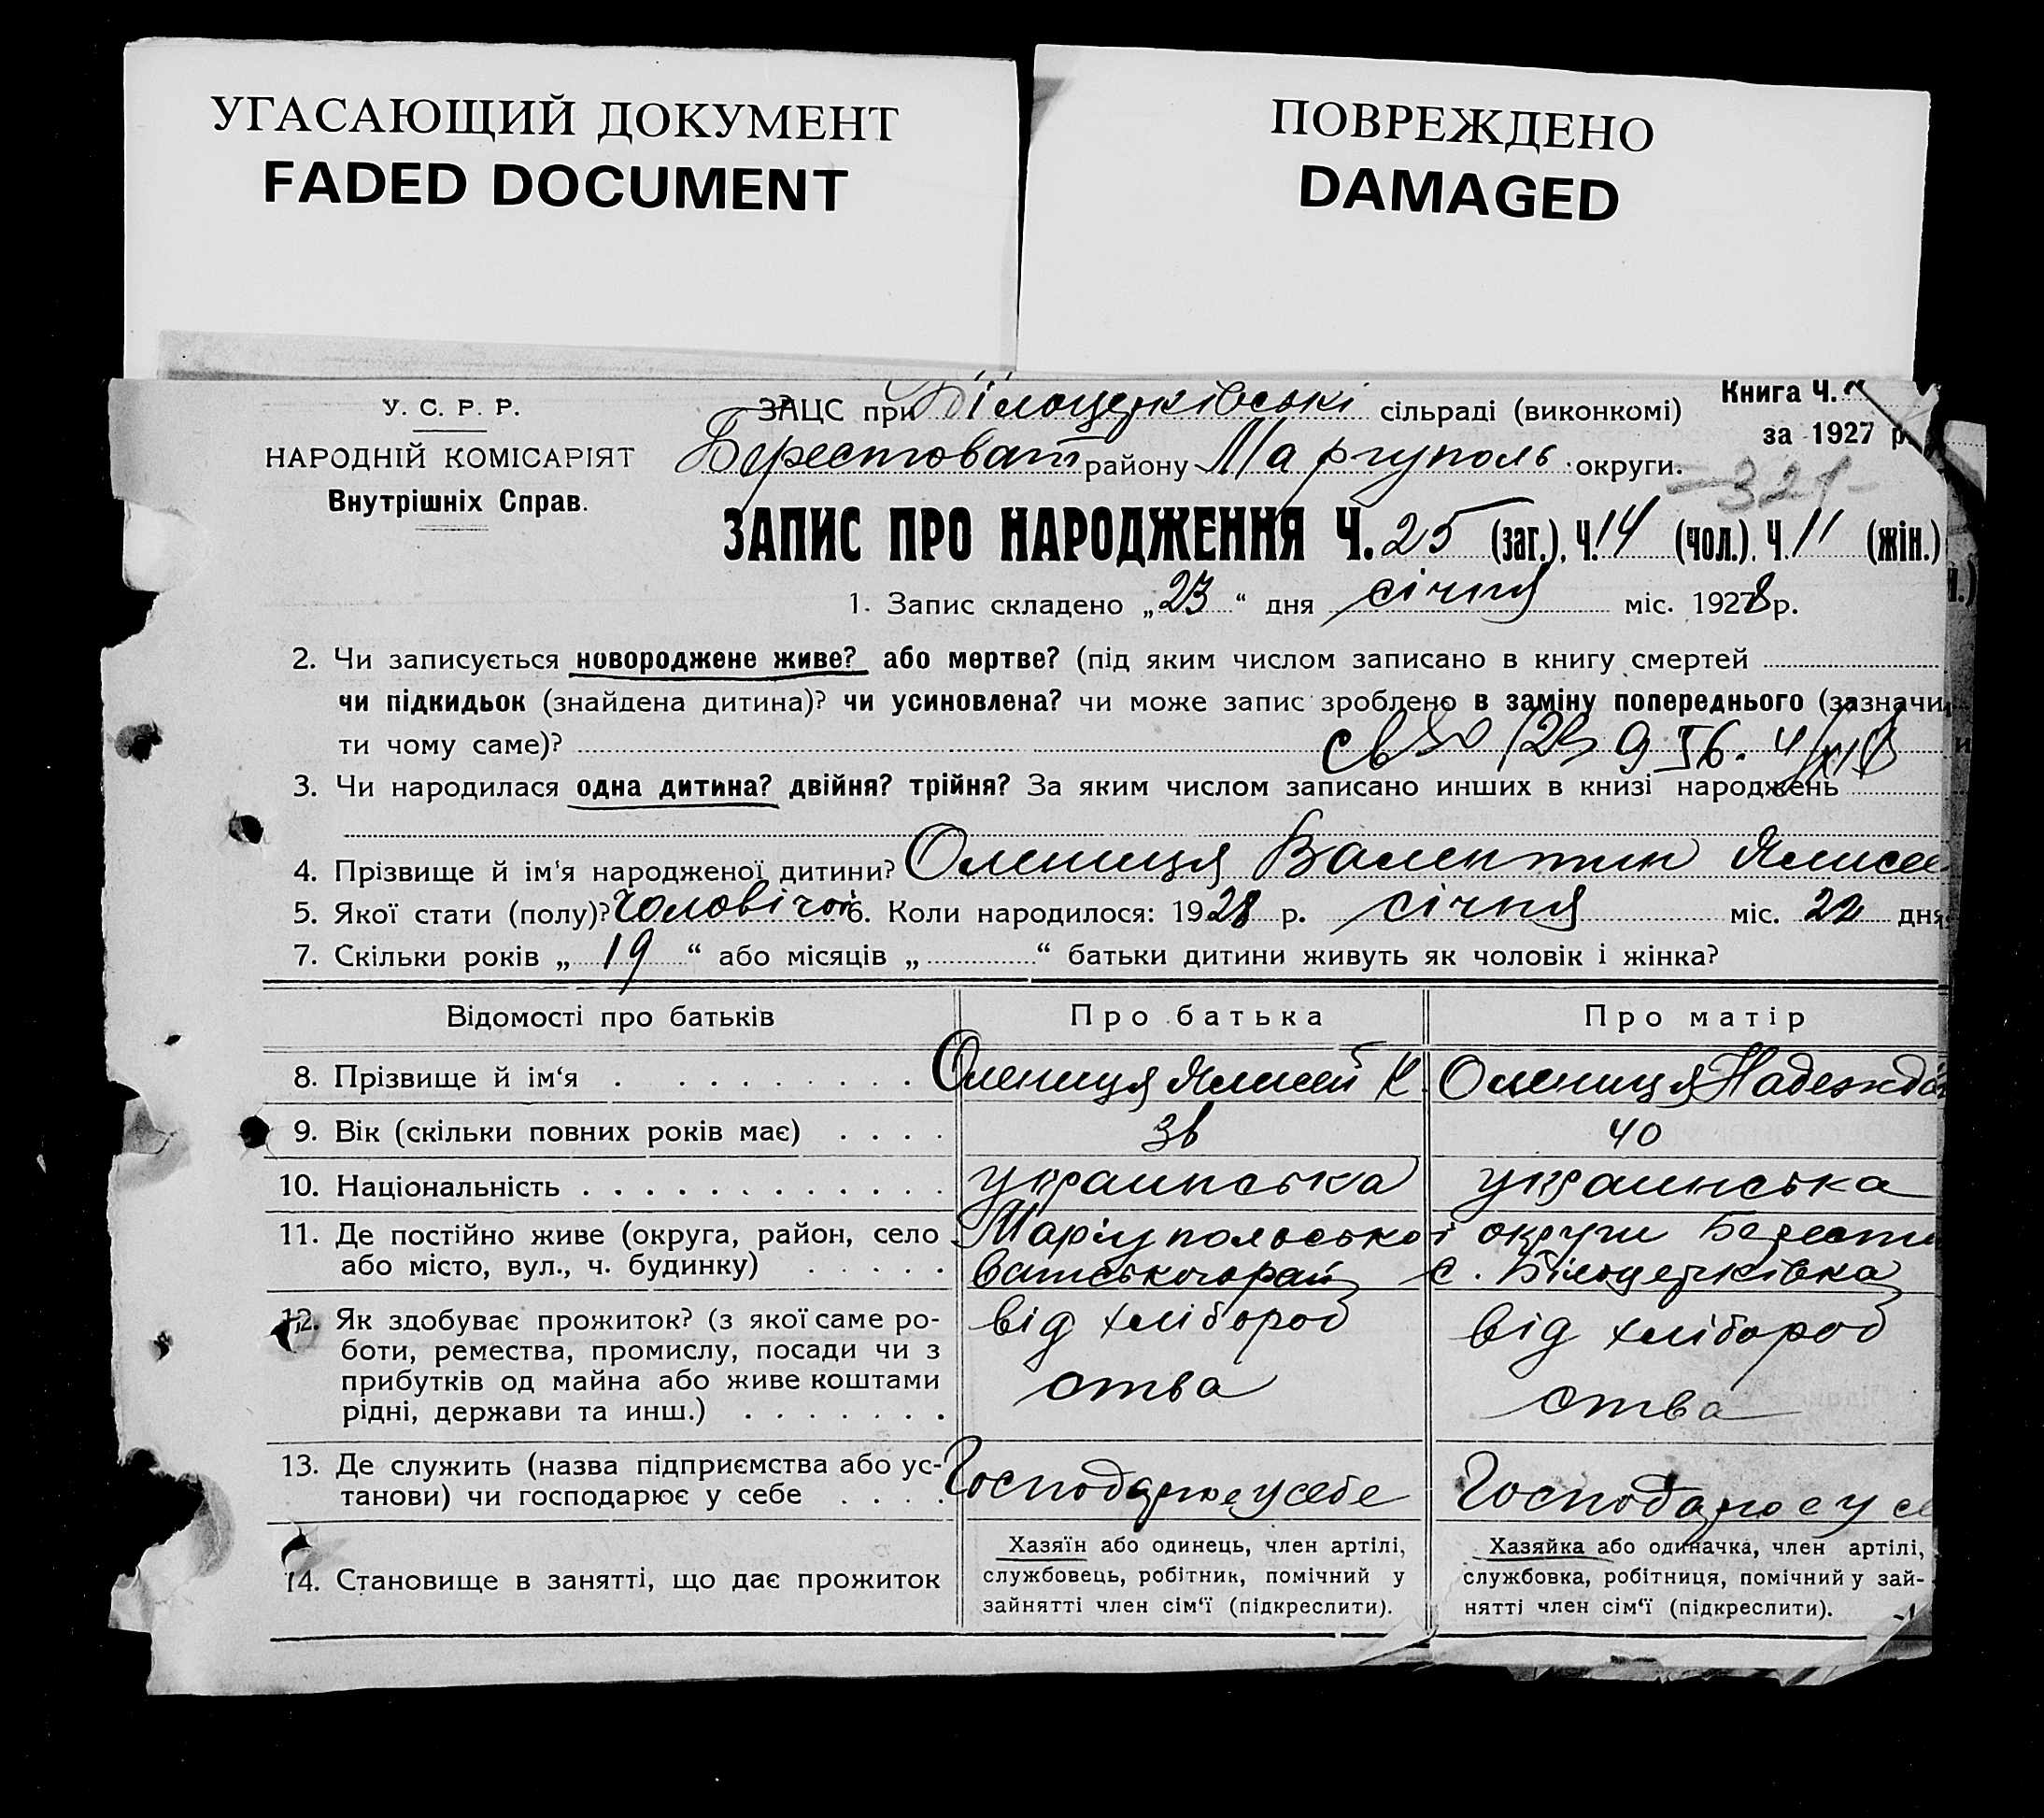 УГАСАЮЩИЙ ДОКУМЕНТ
FADED DOCUMENT
ПОВРЕЖДЕНО
DAMAGED
У. С. Р. Р.
НАРОДНІЙ КОМІСАРІЯТ
Внутрішніх Справ.
Книга Ч.
за 1927 р
ЗАЦС при Білоцерківські сільраді (виконкомі)
Берестоват району Маріуполь округи.
-321-
ЗАПИС ПРО НАРОДЖЕННЯ Ч. 25 (заг.), Ч. 14 (чол.), Ч. 11 (жін.)
1. Запис складено „23“ дня січня міс. 1928 р.
2. Чи записується новороджене живе? або мертве? (під яким числом записано в книгу смертей
чи підкидьок (знайдена дитина)? чи усиновлена? чи може запис зроблено в заміну попереднього (зазначи-
ти чому саме)?
3. Чи народилася одна дитина? двійня? трійня? За яким числом записано инших в книзі народжень
4. Прізвище й ім‘я народженої дитини? Олениця Валентин Ялисе
5. Якої стати (полу)? Чоловічої 6. Коли народилося: 1928 р. січня міс. 22 дня
7. Скільки років „19“ або місяців „ “ батьки дитини живуть як чоловік і жінка?
Відомості про батьків Про батька Про матір
8. Прізвище й ім‘я Олениця Ялисей К. Олениця Надежда
9. Вік (скільки повних років має) 40
10. Національність украинська украинська
11. Де постійно живе (округа, район, село Маріупольської округи Берести
або місто, вул., ч. будинку) ватського рай с. Білоцерківка
12. Як здобуває прожиток? (з якої саме ро- від хлібород від хлібород
боти, ремества, промислу, посади чи з
прибутків од майна або живе коштами ства ства
рідні, держави та инш.)
13. Де служить (назва підприємства або ус-
танови) чи господарює у себе Господарює у себе Господарює у се
14. Становище в занятті, що дає прожиток
Хазяїн або одинець, член артілі,
службовець, робітник, помічний у
зайнятті член сім‘ї (підкреслити).
Хазяйка або одиначка, член артілі,
службовка, робітниця, помічний у зай-
нятті член сім‘ї (підкреслити).